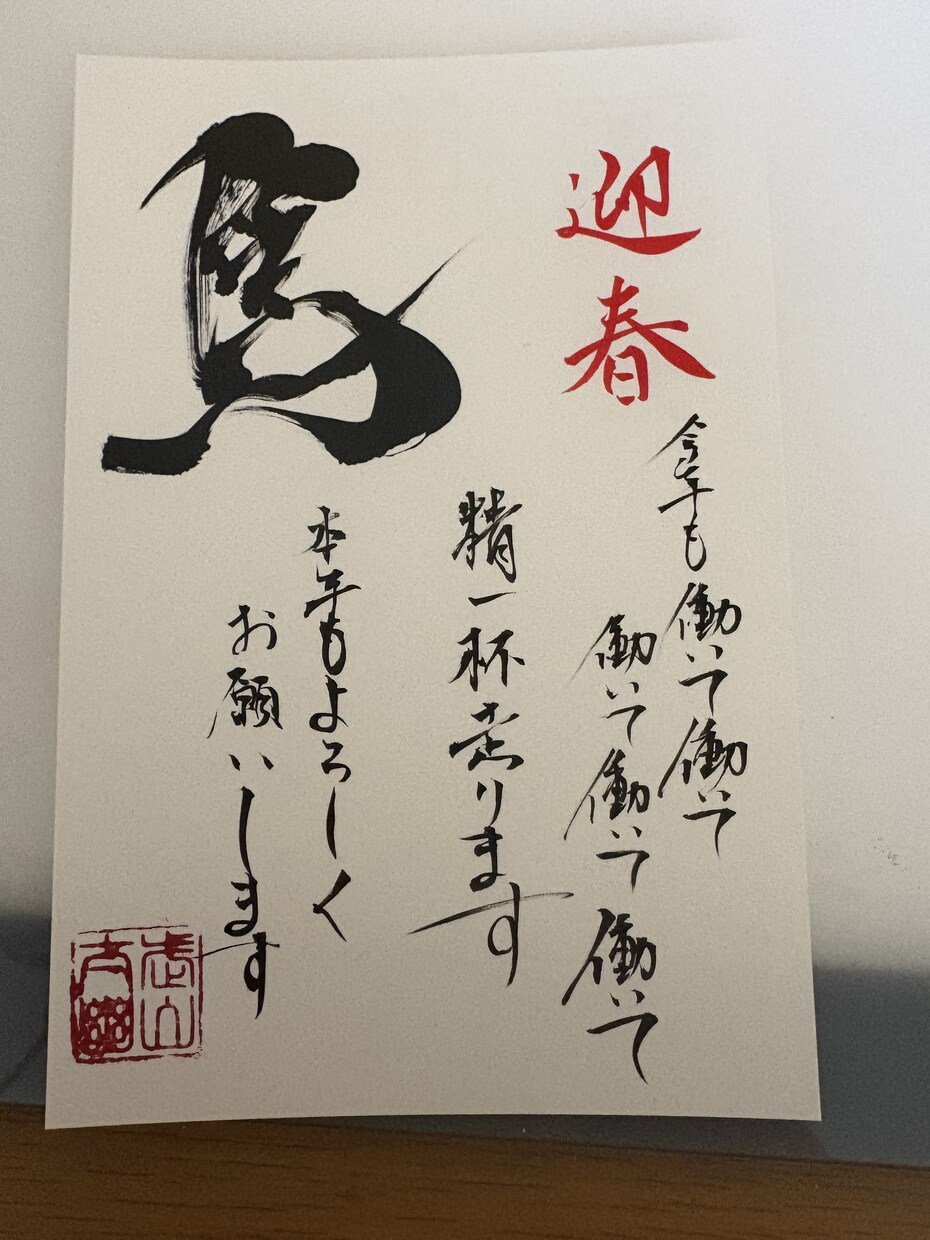 迎春
今年も働いて働いて
働いて働いて働いて
精一杯走ります
本年もよろしく
お願いします
馬